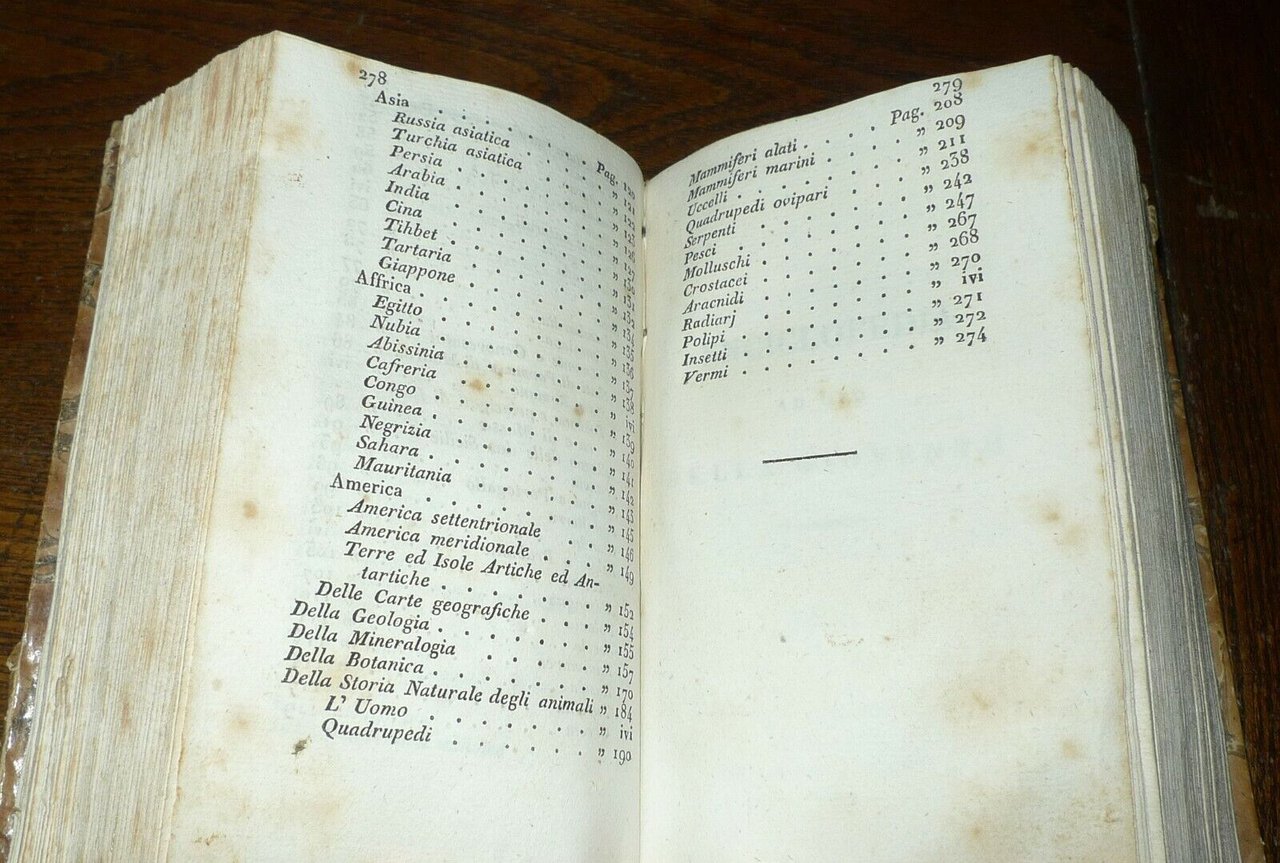 278
Asia . . . . . . . Pag. 120
Russia asiatica . . . . „ 121
Turchia asiatica . . . . „ 122
Persia . . . . . . . „ 123
Arabia . . . . . . . „ 126
India . . . . . . . „ 127
Cina . . . . . . . „ 130
Tihbet . . . . . . . „ 131
Tartaria . . . . . . „ 132
Giappone . . . . . . „ 134
Affrica . . . . . . . „ 135
Egitto . . . . . . . „ 136
Nubia . . . . . . . „ 137
Abissinia . . . . . . „ 138
Cafreria . . . . . . „ ivi
Congo . . . . . . . „ 139
Guinea . . . . . . . „ 140
Negrizia . . . . . . „ 141
Sahara . . . . . . . „ 142
Mauritania . . . . . . „ 143
America . . . . . . . „ 145
America settentrionale . . „ 146
America meridionale . . . „ 149
Terre ed Isole Artiche ed An-
tartiche . . . . . . . „ 152
Delle Carte geografiche . . . „ 154
Della Geologia . . . . . . „ 155
Della Mineralogia . . . . . „ 157
Della Botanica . . . . . . „ 170
Della Storia Naturale degli animali „ 184
L' Uomo . . . . . . . „ ivi
Quadrupedi . . . . . . „ 190
279
Mammiferi alati . . . . Pag. 208
Mammiferi marini . . . . „ 209
Uccelli . . . . . . . „ 211
Quadrupedi ovipari . . . . „ 238
Serpenti . . . . . . . „ 242
Pesci . . . . . . . „ 247
Molluschi . . . . . . „ 267
Crostacei . . . . . . „ 268
Aracnidi . . . . . . . „ 270
Radiarj . . . . . . . „ ivi
Polipi . . . . . . . „ 271
Insetti . . . . . . . „ 272
Vermi . . . . . . . „ 274